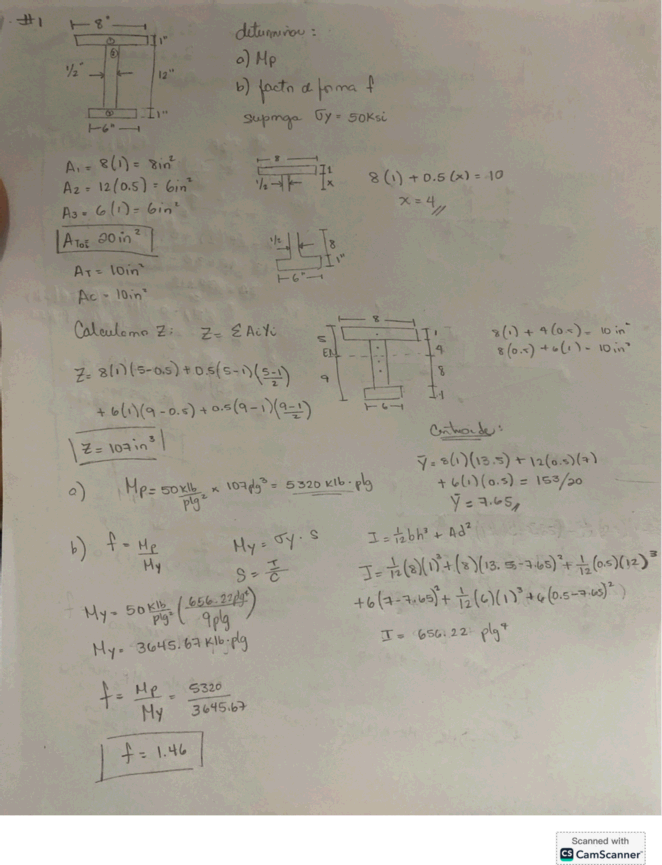 #1
8"
1"
1/2"
12"
1"
6"
determinar:
a) Mp
b) factor d forma f
suponga σy = 50ksi
A1 = 8(1) = 8in²
A2 = 12(0.5) = 6in²
A3 = 6(1) = 6in²
ATot 20in²
AT = 10in²
Ac = 10in²
8
1
1/2
x
8(1) + 0.5(x) = 10
x = 4
1/2
8
1"
6"
Calculamo Z: Z = ΣAiYi
Z = 8(1)(5-0.5) + 0.5(5-1)(5-1/2)
+ 6(1)(9-0.5) + 0.5(9-1)(9-1/2)
Z = 107in³
8
5
EN
9
1
4
8
1
6
8(1) + 4(0.5) = 10 in²
8(0.5) + 6(1) = 10in²
a) Mp = 50 klb/plg² × 107plg³ = 5320 klb·plg
Centroide:
Ȳ = 8(1)(13.5) + 12(0.5)(7)
+ 6(1)(0.5) = 153/20
Ȳ = 7.65
b) f = Mp/My
My = σy · S
S = I/C
I = 1/12 bh³ + Ad²
I = 1/12(8)(1)³ + (8)(13.5-7.65)² + 1/12(0.5)(12)³
+ 6(7-7.65)² + 1/12(6)(1)³ + 6(0.5-7.65)²
I = 656.22 plg⁴
My = 50 klb/plg² (656.22plg⁴/9plg)
My = 3645.67 klb·plg
f = Mp/My = 5320/3645.67
f = 1.46
Scanned with
CS CamScanner